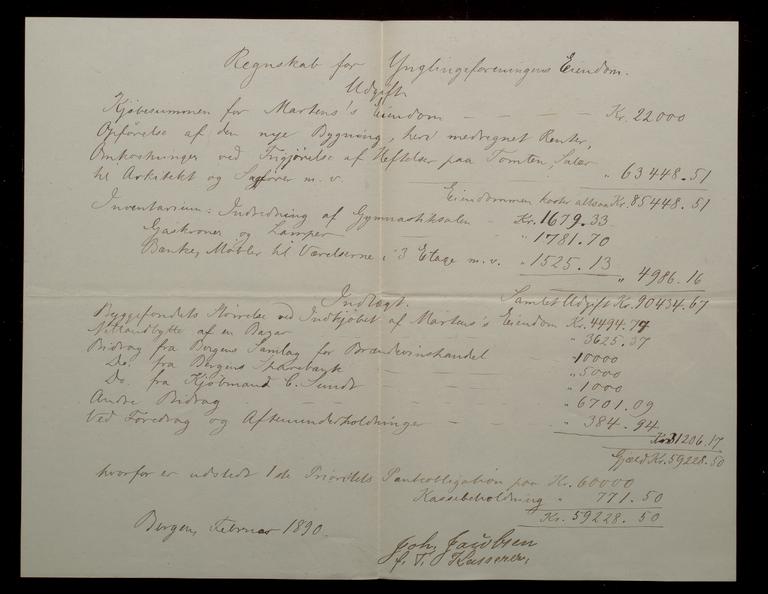 Regnskab for Ynglingeforeningens Eiendom.
Udgift.
Kjøbesummen for Martens's Eiendom — — — Kr. 22000
Opførelse af den nye Bygning, heri medregnet Renter,
Omkostninger ved Frigjørelse af Heftelser paa Tomten, Salær
til Arkitekt og Sagfører m. v. — " 63448.51
Eiendommen koster altsaa Kr. 85448.51
Inventarium: Indredning af Gymnastiksalen — Kr. 1679.33
Gaskroner og Lamper — — " 1781.70
Bænke, Møbler til Værelserne i 3 Etage m. v. " 1525.13
" 4986.16
Samlet Udgift Kr. 90434.67
Indtægt.
Byggefondets Størrelse ved Indkjøbet af Martens's Eiendom Kr. 4494.77
Nettoudbytte af en Bazar — " 3625.37
Bidrag fra Bergens Samlag for Brændevinshandel — " 10000
Do. fra Bergens Sparebank — — " 5000
Do. fra Kjøbmand C. Sundt — — " 1000
Andre Bidrag — — — " 6701.09
Ved Foredrag og Aftenunderholdninger — — " 384.94
Kr. 31206.17
Gjæld Kr. 59228.50
hvorfor er udstedt 1ste Prioritets Panteobligation paa Kr. 60000
Kassebeholdning " 771.50
Kr. 59228.50
Bergen, Februar 1890.
Joh. Jacobsen
f. T. Kasserer.